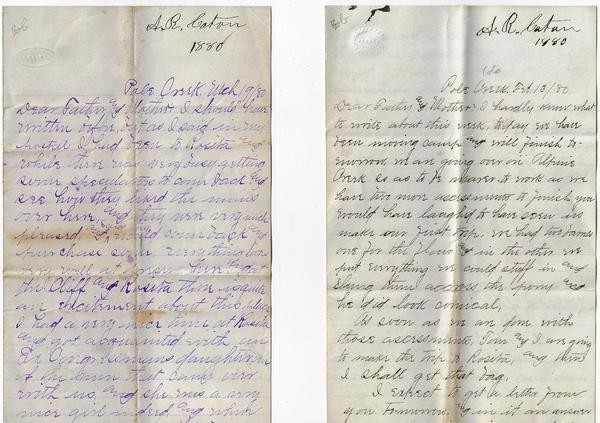 A. R. Eaton
1880
Pole Creek, Mch /9/80
Dear Father & Mother. I should have
written before, but as I said in my
postal I had been to Rosita and
while there was very busy getting
some speculators to come back and
see how they liked the mines
over here, and they were very much
pleased, and said would come back and
purchase soon. Everything looks
very well at
the Cliff and Rosita there is quite
an excitement about this place
I had a very nice time at Rosita
and got acquainted with an
Ex Congressmans daughter
of the men that came over
with us, and she was a very
nice girl indeed and which
A. R. Eaton
1880
Colo
Pole Creek, Feb 13/80
Dear Father & Mother. I hardly know what
to write about this week, to day we have
been moving camp and will finish to-
morrow. we are going over on Alpine
Creek so as to be nearer to work as we
have two more assessments to finish you
would have laughed to have seen us
make our first trip. We had two
one for the flour and in the other we
put everything we could stuff in and
slung them across the pony and
he did look comical.
As soon as we are done with
those assessments, Tom & I are going
to make the trip to Rosita, and then
I shall get that bag.
I expect to get a letter from
you tomorrow, & in it an answer